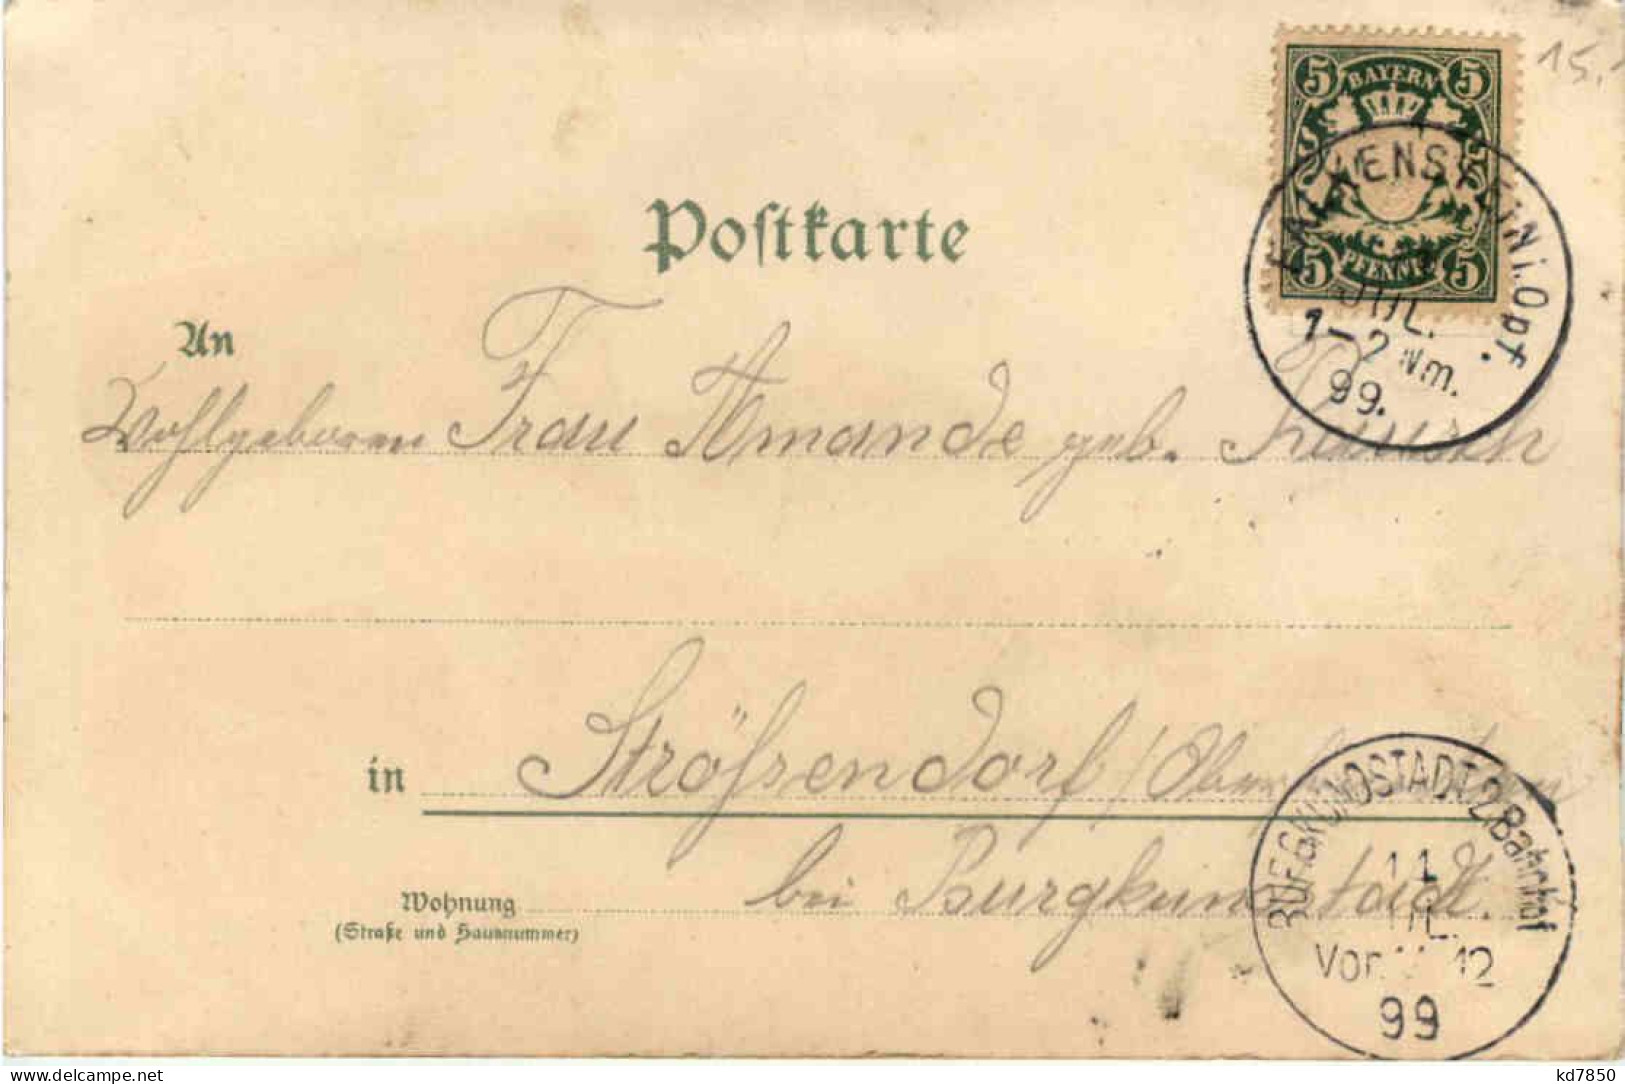 15.
5 BAYERN 5
5 PFENNIG 5
FALKENSTEIN i. Opf.
JUL.
1-2 Nm.
99.
Postkarte
An
Wohlgeboren Frau Amande geb.
in Strößendorf / Oberfranken
bei Burgkunstadt.
Wohnung
(Straße und Hausnummer)
BURGKUNDSTADT 2. Bahnhof
11
JUL.
Vor. 12
99
www.delcampe.net
kd7850